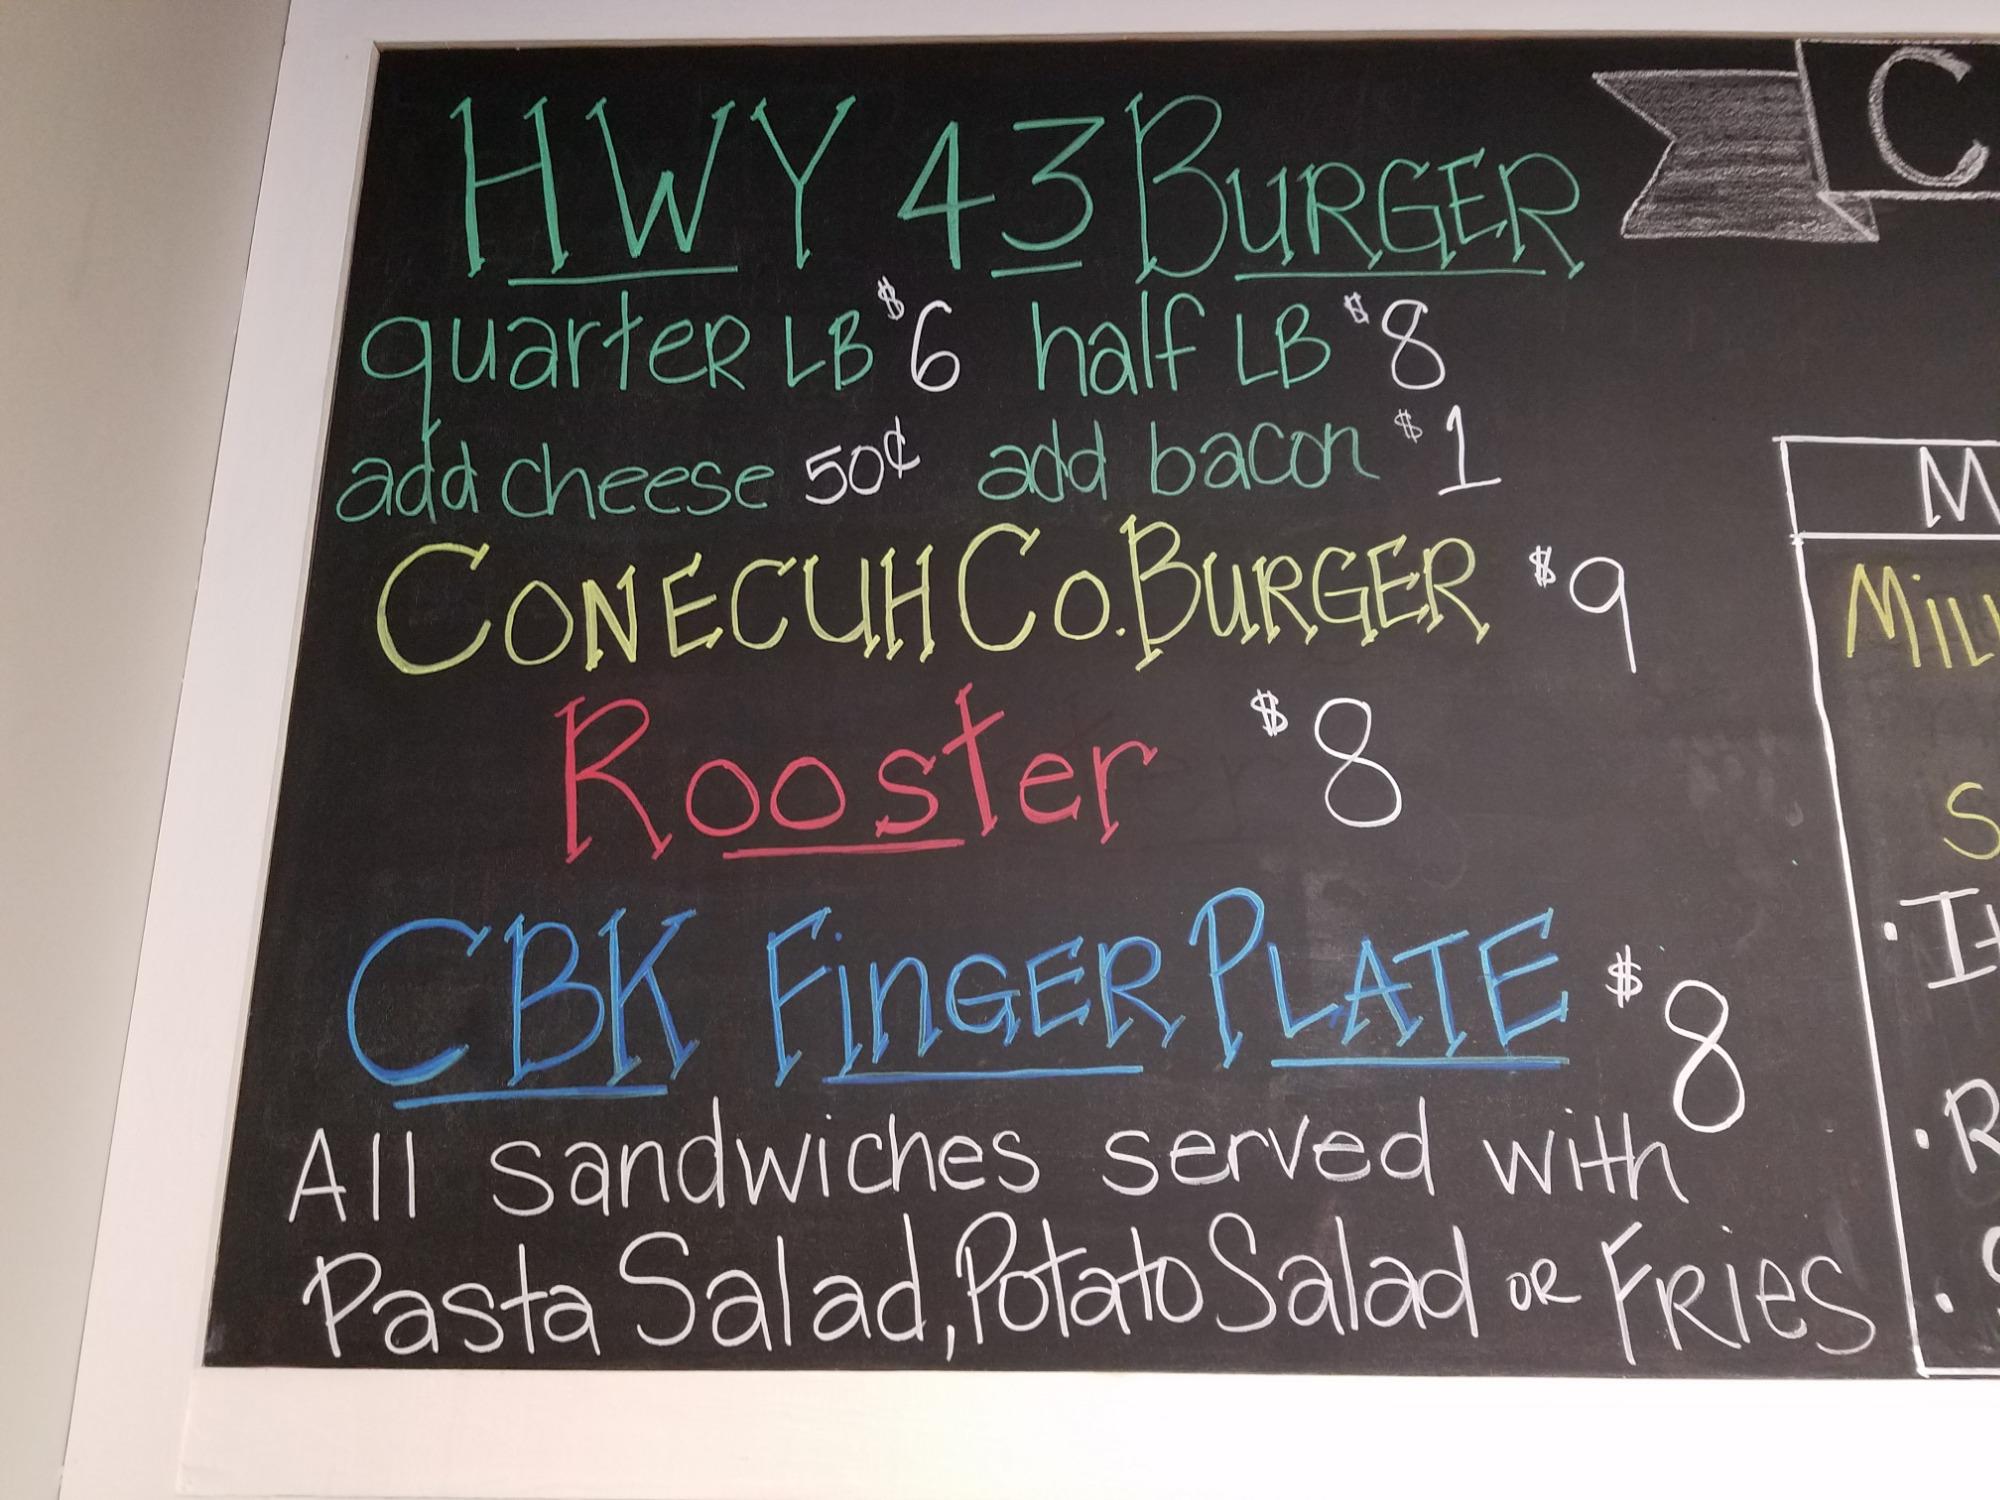 HWY 43 BURGER
quarter LB $6 half LB $8
add cheese 50¢ add bacon $1
CONECUH CO. BURGER $9
Rooster $8
CBK FiNGER PLATE $8
All sandwiches served with
Pasta Salad, Potato Salad OR FRies
C
M
MiL
S
• It
• R